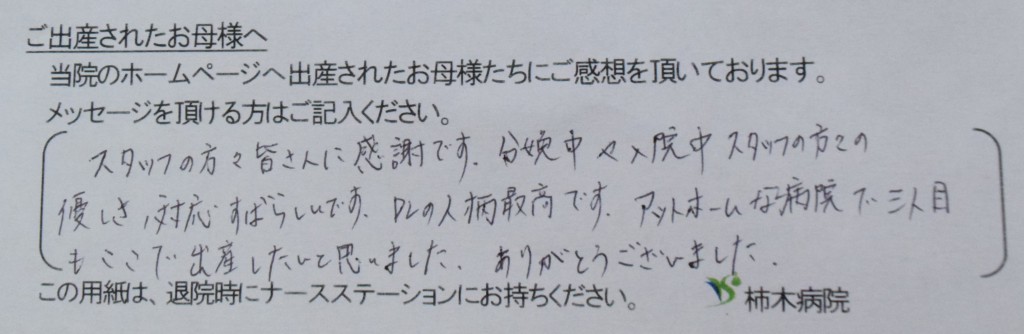 ご出産されたお母様へ
当院のホームページへ出産されたお母様たちにご感想を頂いております。
メッセージを頂ける方はご記入ください。
スタッフの方々皆さんに感謝です。分娩中や入院中スタッフの方々の
優しさ、対応すばらしいです。Drの人柄最高です。アットホームな病院で三人目
もここで出産したいと思いました。ありがとうございました。
この用紙は、退院時にナースステーションにお持ちください。
柿木病院